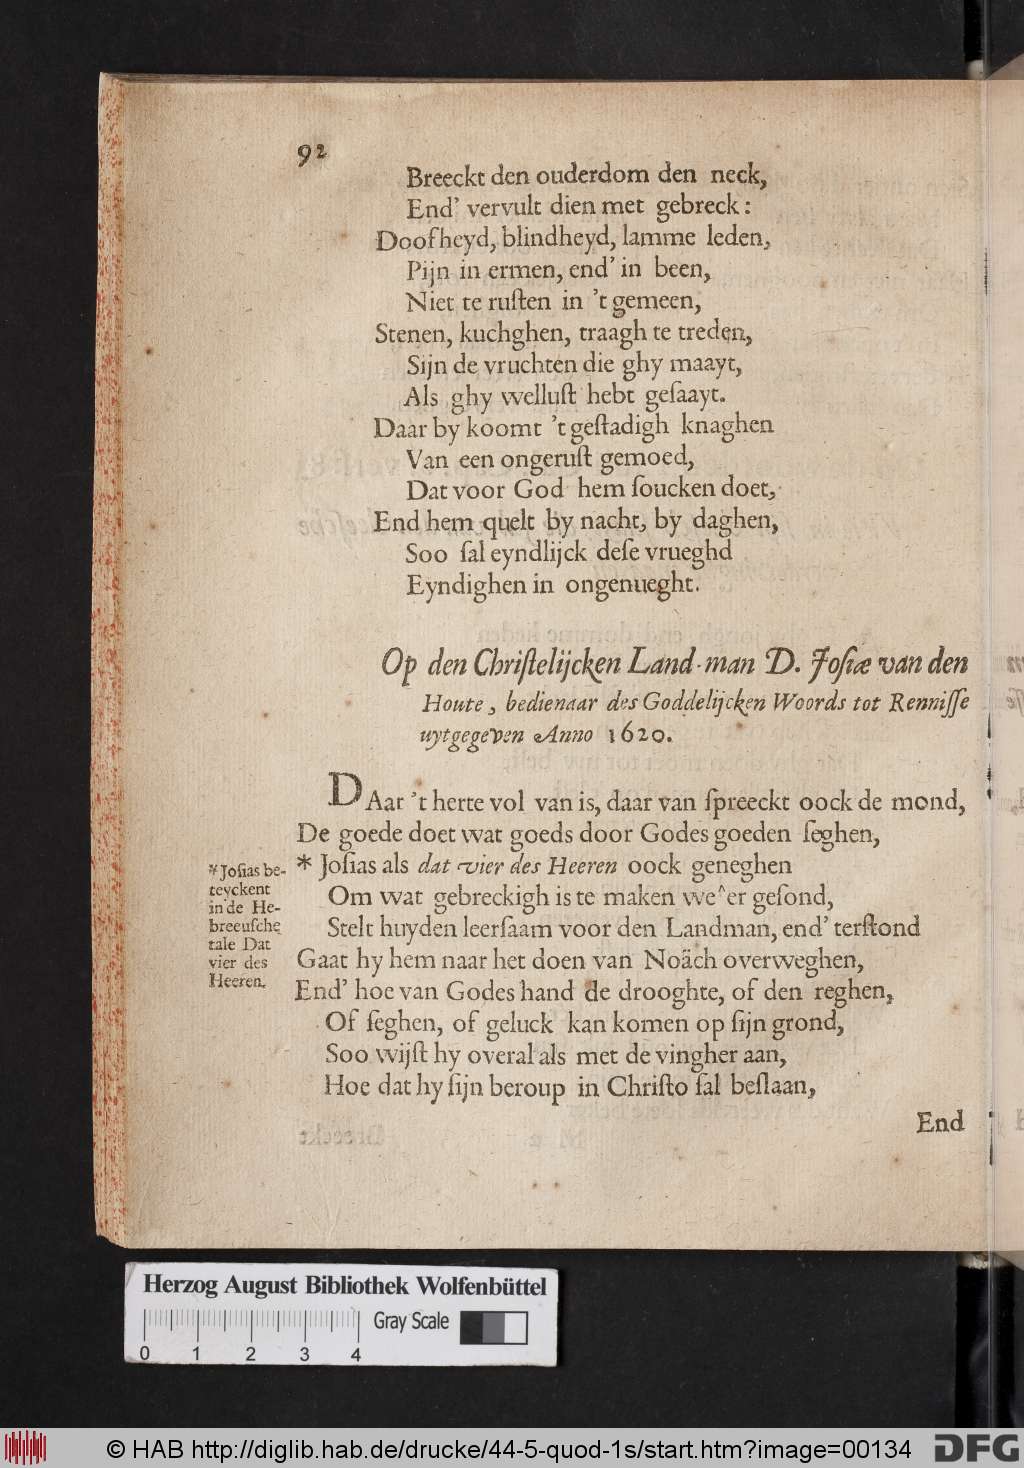 92
Breeckt den ouderdom den neck,
End' vervult dien met gebreck:
Doofheyd, blindheyd, lamme leden,
Pijn in ermen, end' in been,
Niet te ruſten in 't gemeen,
Stenen, kuchghen, traagh te treden,
Sijn de vruchten die ghy maayt,
Als ghy welluſt hebt geſaayt.
Daar by koomt 't geſtadigh knaghen
Van een ongeruſt gemoed,
Dat voor God hem ſoucken doet,
End hem quelt by nacht, by daghen,
Soo ſal eyndlijck deſe vrueghd
Eyndighen in ongenueght.
Op den Chriſtelijcken Land-man D. Joſiæ van den
Houte, bedienaar des Goddelijcken Woords tot Renniſſe
uytgegeven Anno 1620.
DAar 't herte vol van is, daar van ſpreeckt oock de mond,
De goede doet wat goeds door Godes goeden ſeghen,
* Joſias als dat vier des Heeren oock geneghen
Om wat gebreckigh is te maken we^er geſond,
Stelt huyden leerſaam voor den Landman, end' terſtond
Gaat hy hem naar het doen van Noäch overweghen,
End' hoe van Godes hand de drooghte, of den reghen,
Of ſeghen, of geluck kan komen op ſijn grond,
Soo wijſt hy overal als met de vingher aan,
Hoe dat hy ſijn beroup in Chriſto ſal beſlaan,
End
* Joſias be-
teyckent
in de He-
breeuſche
tale Dat
vier des
Heeren.
Herzog August Bibliothek Wolfenbüttel
Gray Scale
0 1 2 3 4
© HAB http://diglib.hab.de/drucke/44-5-quod-1s/start.htm?image=00134
DFG